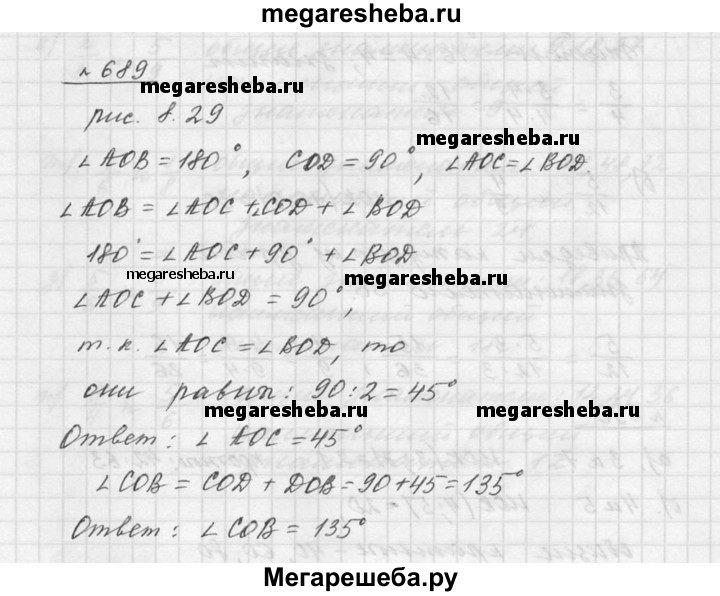 megaresheba.ru
№ 689
megaresheba.ru
рис. 8.29
megaresheba.ru
∠AOB = 180°, COD = 90°, ∠AOC = ∠BOD.
∠AOB = ∠AOC + ∠COD + ∠BOD
180° = ∠AOC + 90° + ∠BOD
megaresheba.ru
∠AOC + ∠BOD = 90°,
т.к. ∠AOC = ∠BOD, то
они равны: 90:2 = 45°
megaresheba.ru megaresheba.ru
Ответ: ∠AOC = 45°
∠COB = COD + DOB = 90 + 45 = 135°
Ответ: ∠COB = 135°
Мегарешеба.ру